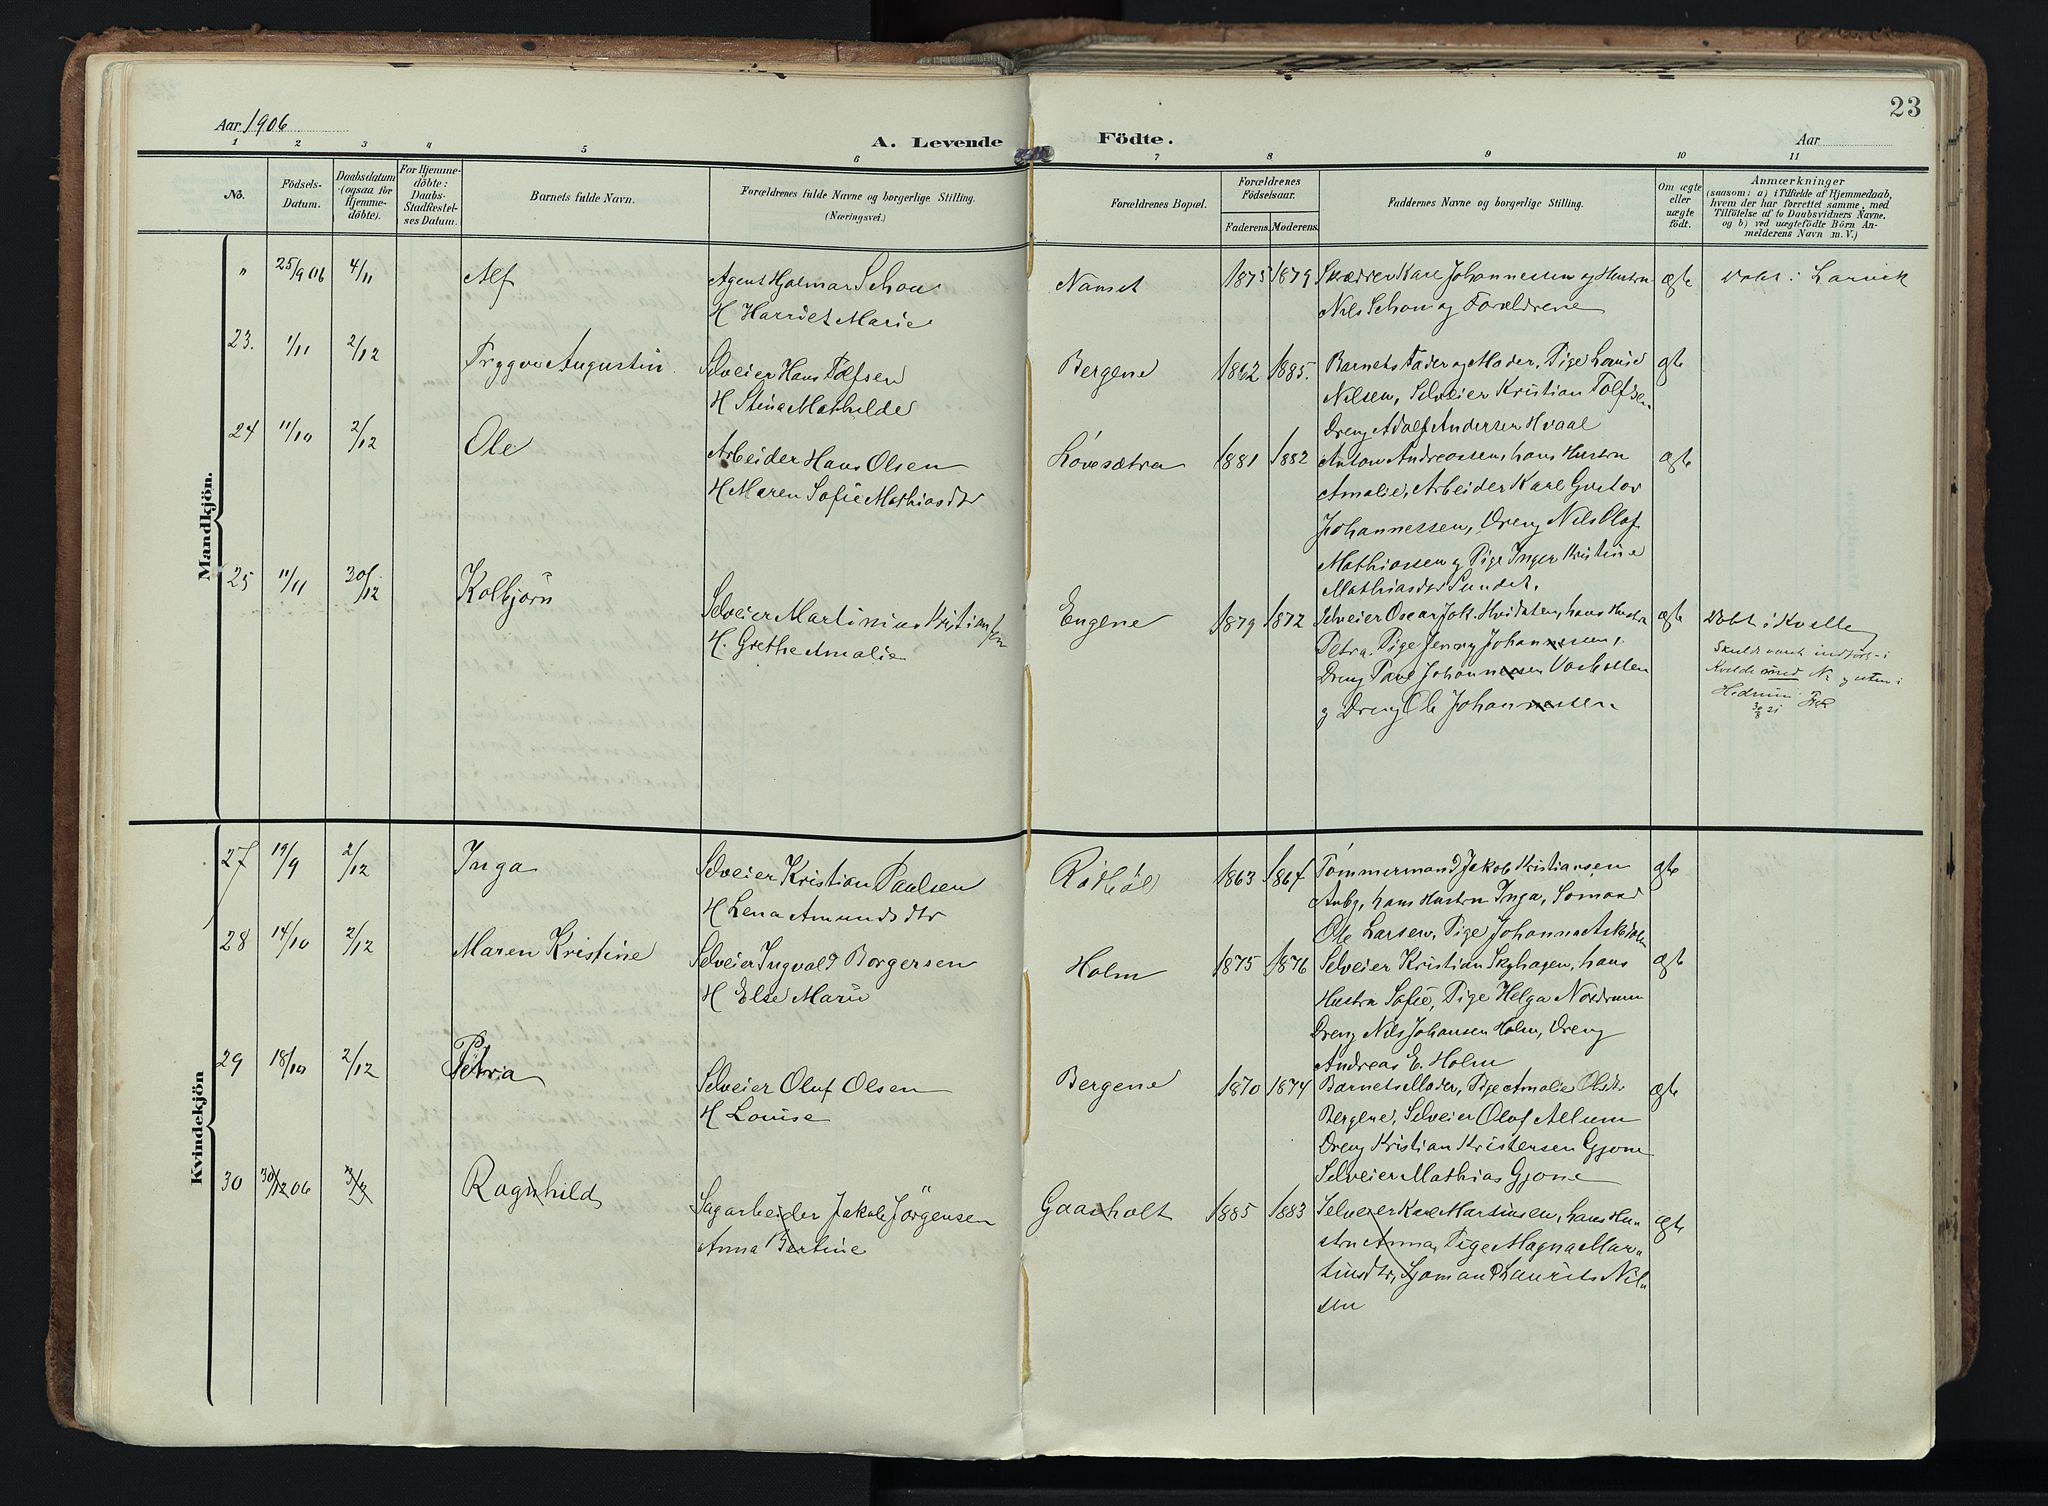 23
Aar 1906
A. Levende Födte.
Aar
1 2 3 4 5 6 7 8 9 10 11
No.
Födsels-Datum.
Daabsdatum (ogsaa for Hjemme-döbte).
For Hjemme-döbte: Daabs-Stadfæstel-ses Datum.
Barnets fulde Navn.
Forældrenes fulde Navne og borgerlige Stilling. (Næringsvei.)
Forældrenes Bopæl.
Forældrenes Födselsaar.
Faderens. Moderens.
Faddernes Navne og borgerlige Stilling.
Om ægte eller uægte födt.
Anmærkninger
(saasom: a) i Tilfælde af Hjemmedaab,
hvem der har forrettet samme, med
Tilföielse af to Daabsvidners Navne,
og b) ved uægtefödte Börn An-
melderens Navn m. V.)
Mandkjön.
" 25/9 06 4/11 Alf
Agent Hjalmar Schou
H Harriet Marie
Nanset 1875 1879
Skrædder Karl Johannessen og Hustru
Nils Schou og Forældrene
ægte
Døbt i Larvik
23. 1/11 2/12 Trygve Augustin.
Selveier Hans Tolfsen
H Stina Mathilde
Bergene 1862 1885.
Barnets Fader og Moder, Pige Louise
Nilsen, Selveier Kristian Tolfsen
Dreng Adolf Andersen Hvaal
ægte
24 11/10 2/12 Ole
Arbeider Hans Olsen
H Maren Sofie Mathiasdtr
Løvesætra 1881 1882
Anton Andreassen, hans Hustru
Amalie, Arbeider Karl Gustav
Johannessen, Dreng Nils Olaf
Mathiassen og Pige Inger Kristine
Mathiasdtr Sundet.
ægte
25 11/11 30/12 Kolbjörn
Selveier Martinius Kristiansen
H. Grethe Amalie
Eugene 1879 1872
Selveier Oscar Joh. Hvidsten, hans Hustru
Petra, Pige Jenny Johannessen,
Dreng Paul Johannessen
og Dreng Ole Johannessen.
ægte
Døbt i Kvelle
Skulde været indført i
Kvelde med Nr og uten i
Hedrum
30/8 21
Kvindekjön
27 19/9 2/12 Inga
Selveier Kristian Paulsen
H Lena Amundsdtr
Rødbøl 1863 1864
Tømmermand Jakob Kristiansen
Auby, hans Hustru Inga, Sømand
Ole Larsen, Pige Johanna
ægte
28 14/10 2/12 Maren Kristine
Selveier Ingvald Borgersen
H Else Marie
Holm 1875 1876
Selveier Kristian Skyhagen, hans
Hustru Sofie, Pige Helga Nordrum
Dreng Nils Johansen Holm, Dreng
Andreas E. Holm
ægte
29 18/10 2/12 Petra
Selveier Oluf Olsen
H Louise
Bergene 1870 1874
Barnets Moder, Pige Amalie Olsdtr
Bergene, Selveier Olof Allum
Dreng Kristian Kristensen Gjone
Selveier Mathias Gjone
ægte
30 30/12 06 3/2 Ragnhild
Sagarbeider Jakob Jörgensen
Anna Bertine
Gaasholt 1885 1883
Selveier Karl Martinsen, hans Hu-
stru Anna, Pige Magna Mar-
tinsdtr, Sjømand Laurits Nil-
sen
ægte